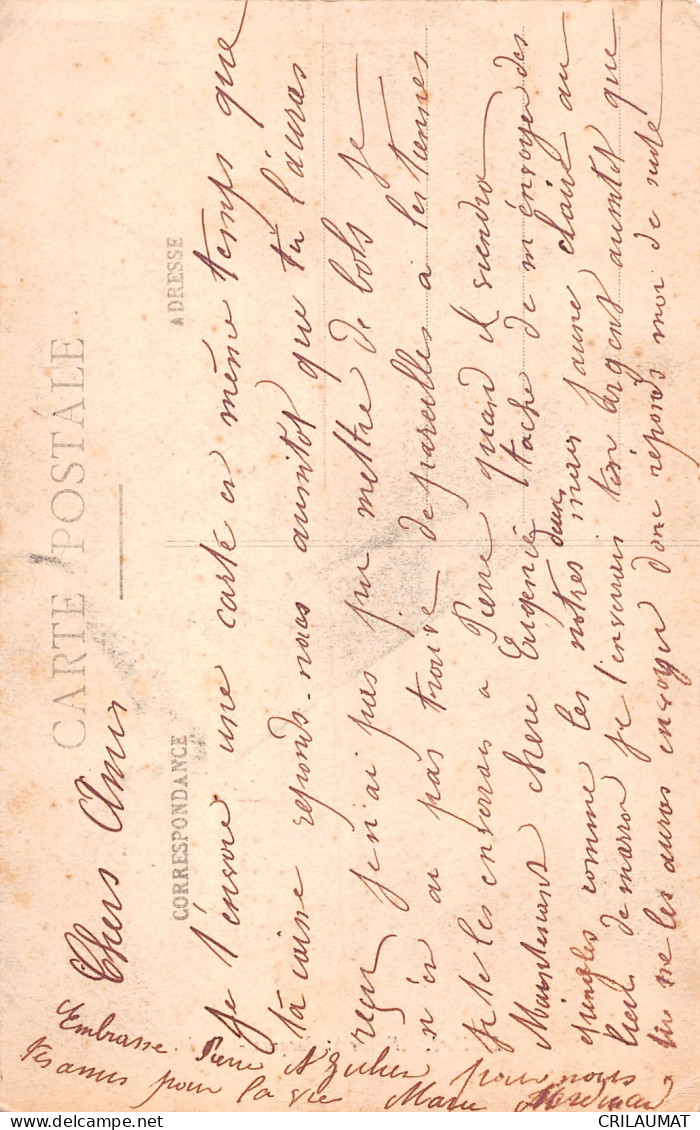 CARTE POSTALE
CORRESPONDANCE
ADRESSE
Chers Amis
Je t'envoie une carte en même temps que
ta caisse reponds-nous aussitot que tu l'auras
reçu je n'ai pas pu mettre de bols je
n'en ai pas trouvé de pareilles à les tiennes
Je te les enverrai a Pierre quand il viendra
Maintenant chere Eugenie tache de m'envoyer des
epingles comme les notres deux mais jaune claire au
lieu de marron je t'enverrais ton argent aussitot que
tu ne les auras envoyer donc réponds moi de suite
Embrasse Pierre pour nous
tes amis pour la vie Marie
CRILAUMAT